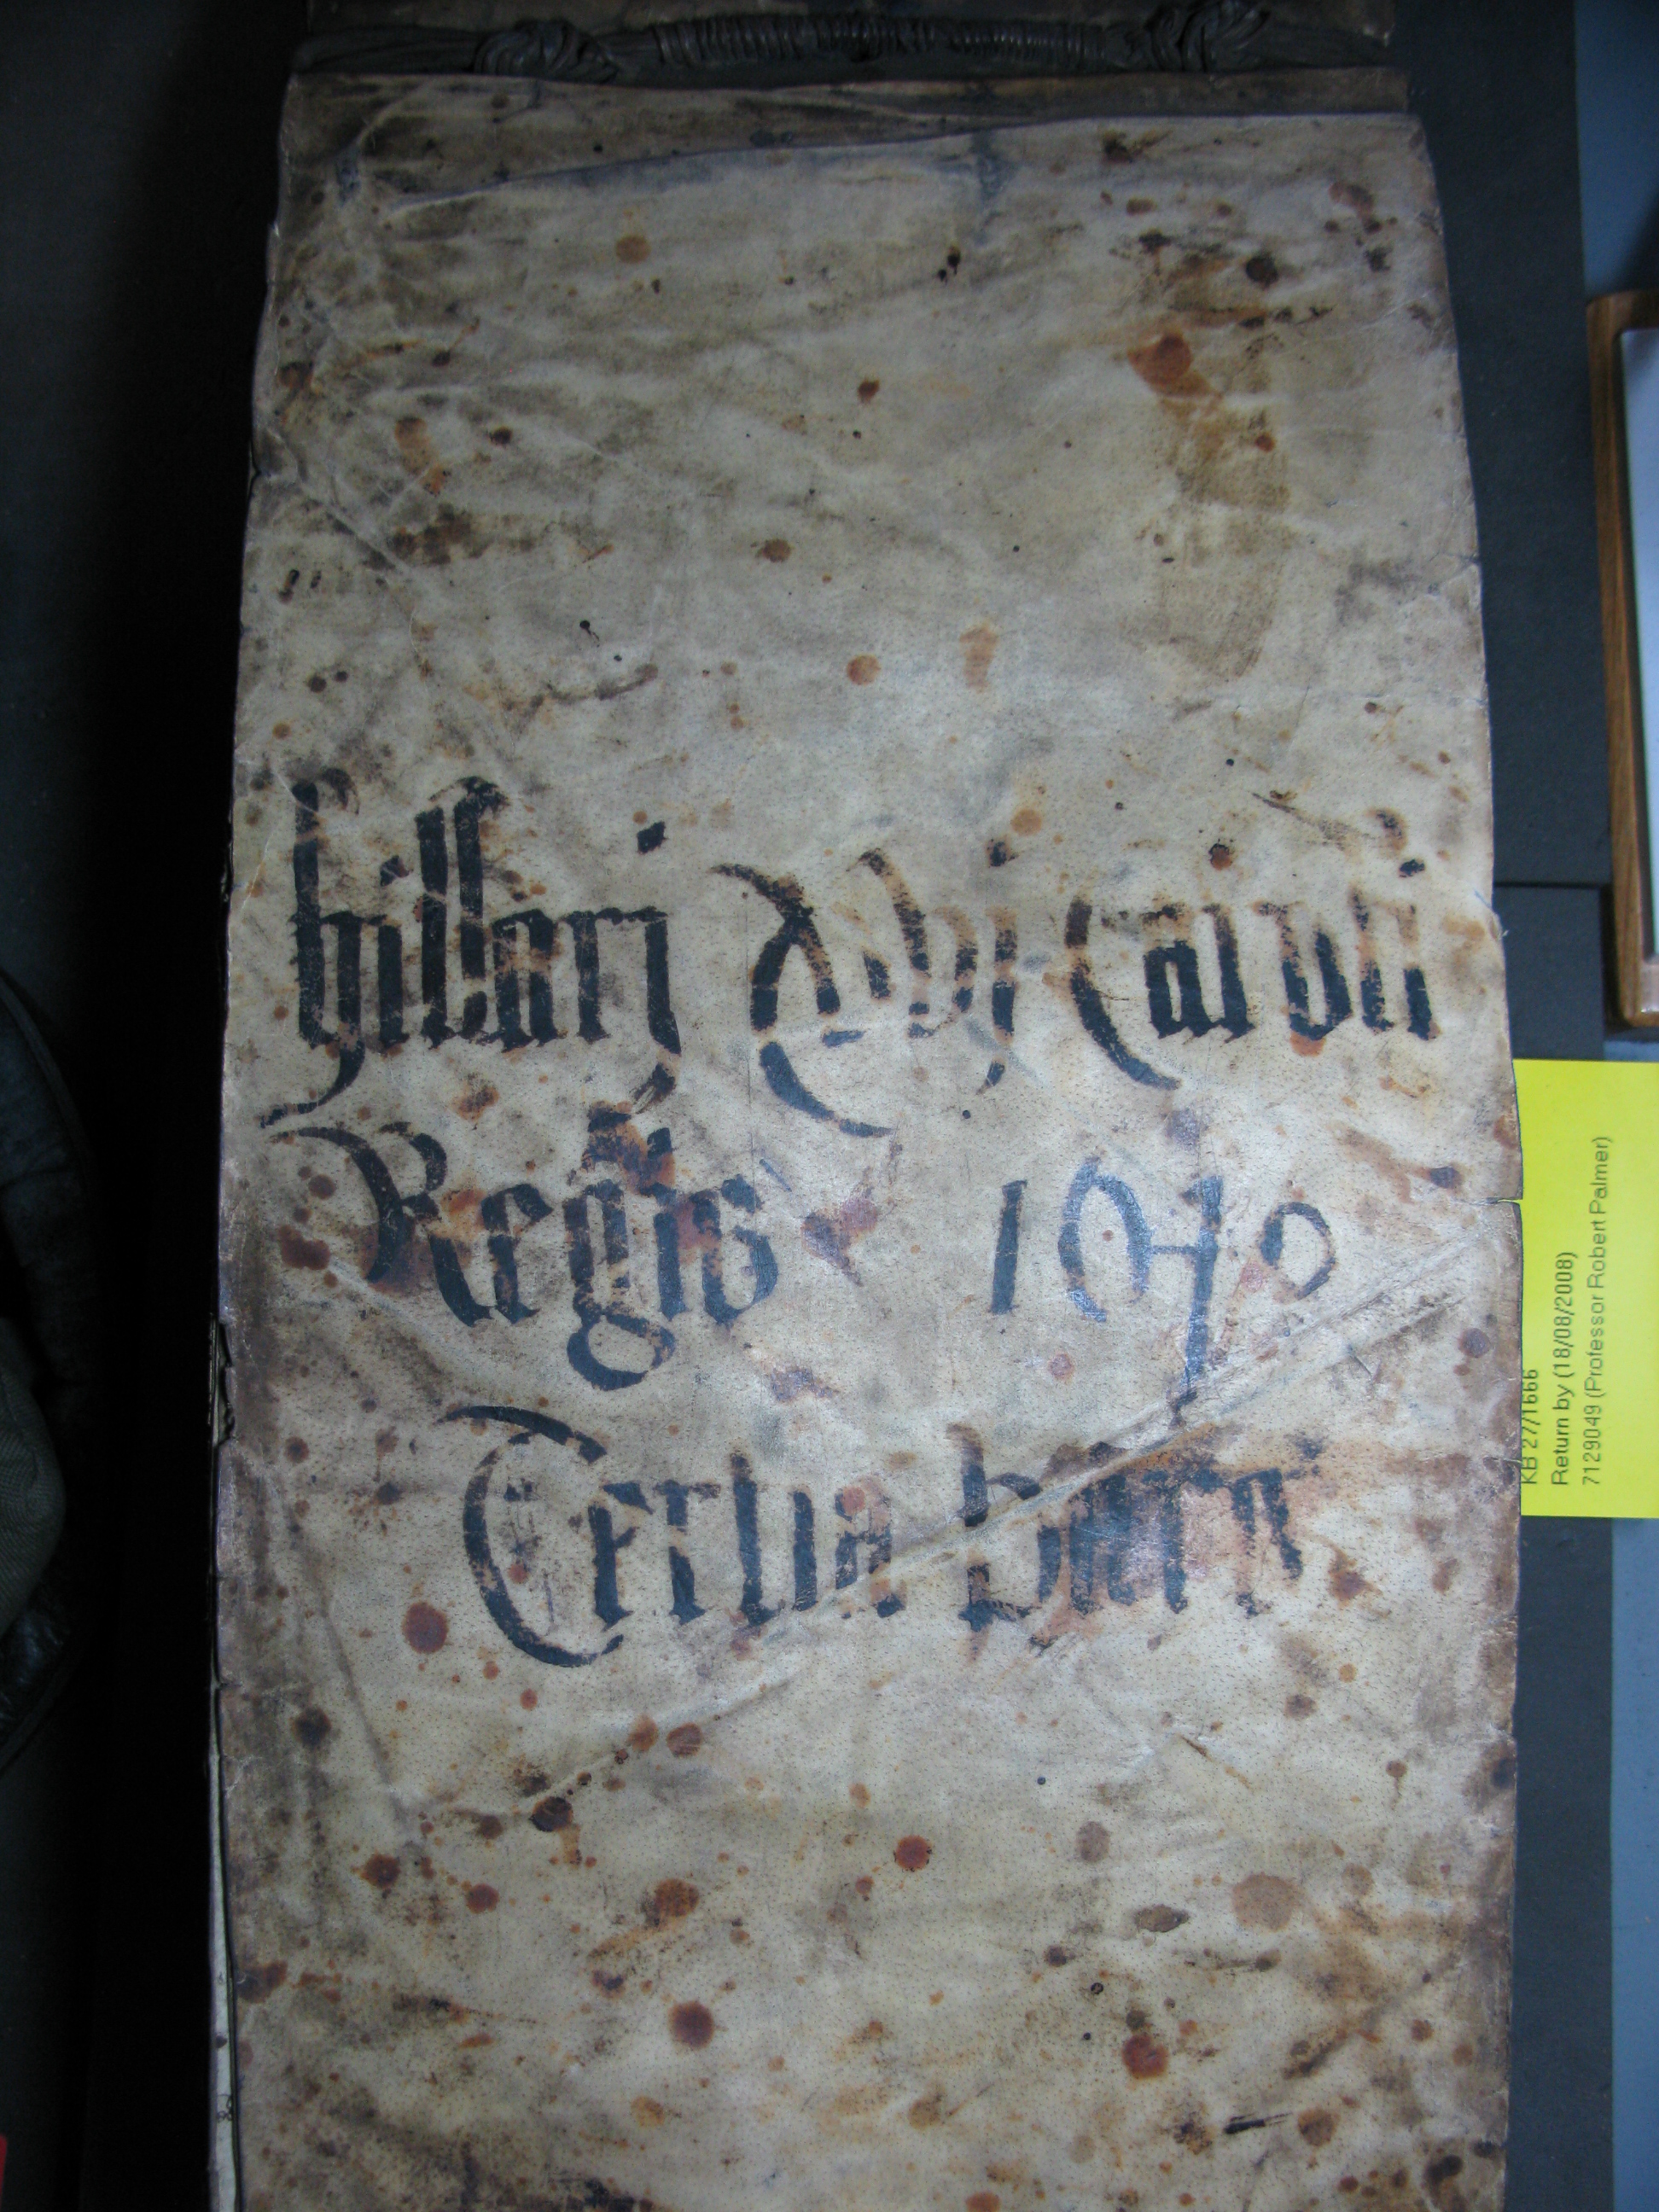 hillarj xvj Caroli
Regis 1640
Tertia pars
KB 27/1666
Return by (18/08/2008)
7129049 (Professor Robert Palmer)